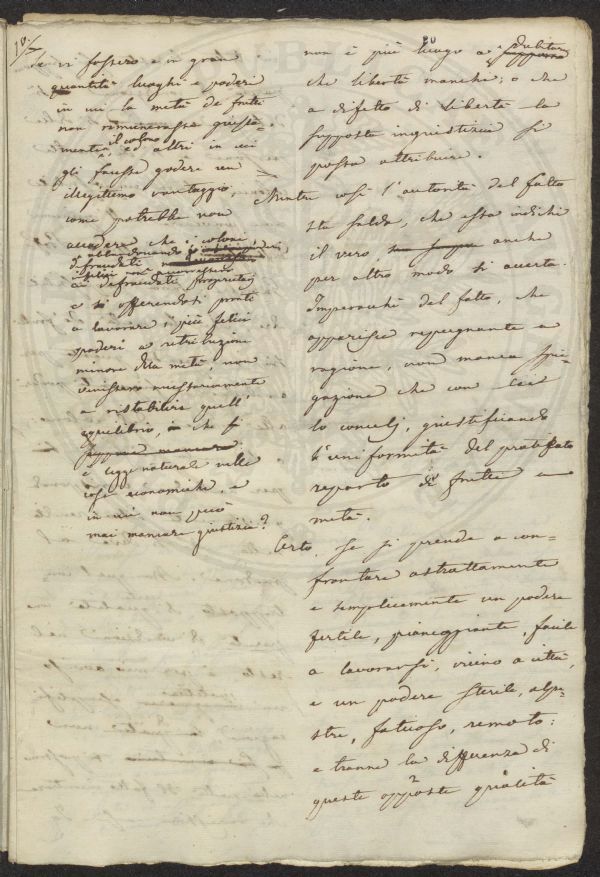 18.
Se vi fossero e in gran
quantità luoghi e poderi
in cui la metà de frutti
non remunerasse giusta-
mente il colono ed altri in cui
gli facesse godere un
illegittimo vantaggio,
come potrebbe non
accadere che i coloni
defraudati abbandonando i
poderi
defraudati proprietarj
e offerendosi pronti
a lavorare i più felici
poderi a retribuzioni
minore della metà, non
venissero necessariamente
a ristabilire quell'
equilibrio, che
suppone mancare
è legge naturale nelle
cose economiche, e
in cui non può
mai mancare giustizia?
20
non è più luogo a dubitare
supporre
che libertà manchi; o che
a difetto di libertà la
supposta ingiustizia si
possa attribuire.
Mentre così l'autorità del fatto
sta salda, che essa indichi
il vero, anche
per altro modo si accerta.
Imperocchè del fatto, che
apparisce repugnante a
ragione, non manca spie-
gazione che con lei
lo concilj, giustificando
l'uniformità del praticato
reparto di frutti a
metà.
Certo, se si prende a con-
frontare astrattamente
e semplicemente un podere
fertile, pianeggiante, facile
a lavorarsi, vicino a città,
e un podere sterile, alpe-
stre, faticoso, remoto:
e tranne la differenza di
queste opposte qualità